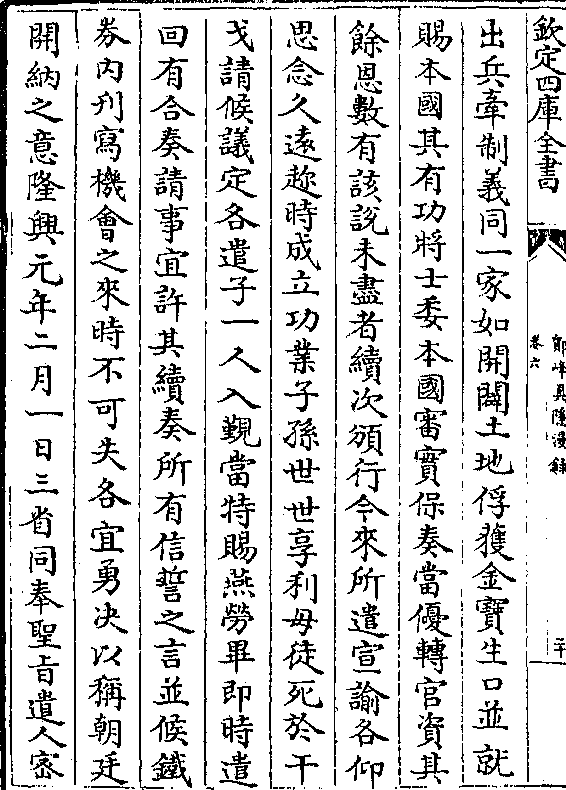 欽定四庫全書
鄮峰真隱漫錄
卷六
二十
出兵牽制義同一家如開闢土地俘獲金寶生口並就
賜本國其有功將士委本國審實保奏當優轉官資其
餘恩數有該説未盡者續次頒行今來所遣宣諭各仰
思念久遠趂時成立功業子孫世世享利毋徒死於干
戈請候議定各遣子一人入覲當特賜燕勞畢即時遣
回有合奏請事宜許其續奏所有信誓之言並候鐵
券内刋寫機會之來時不可失各宜勇决以稱朝廷
開納之意隆興元年二月一日三省同奉聖旨遣人密